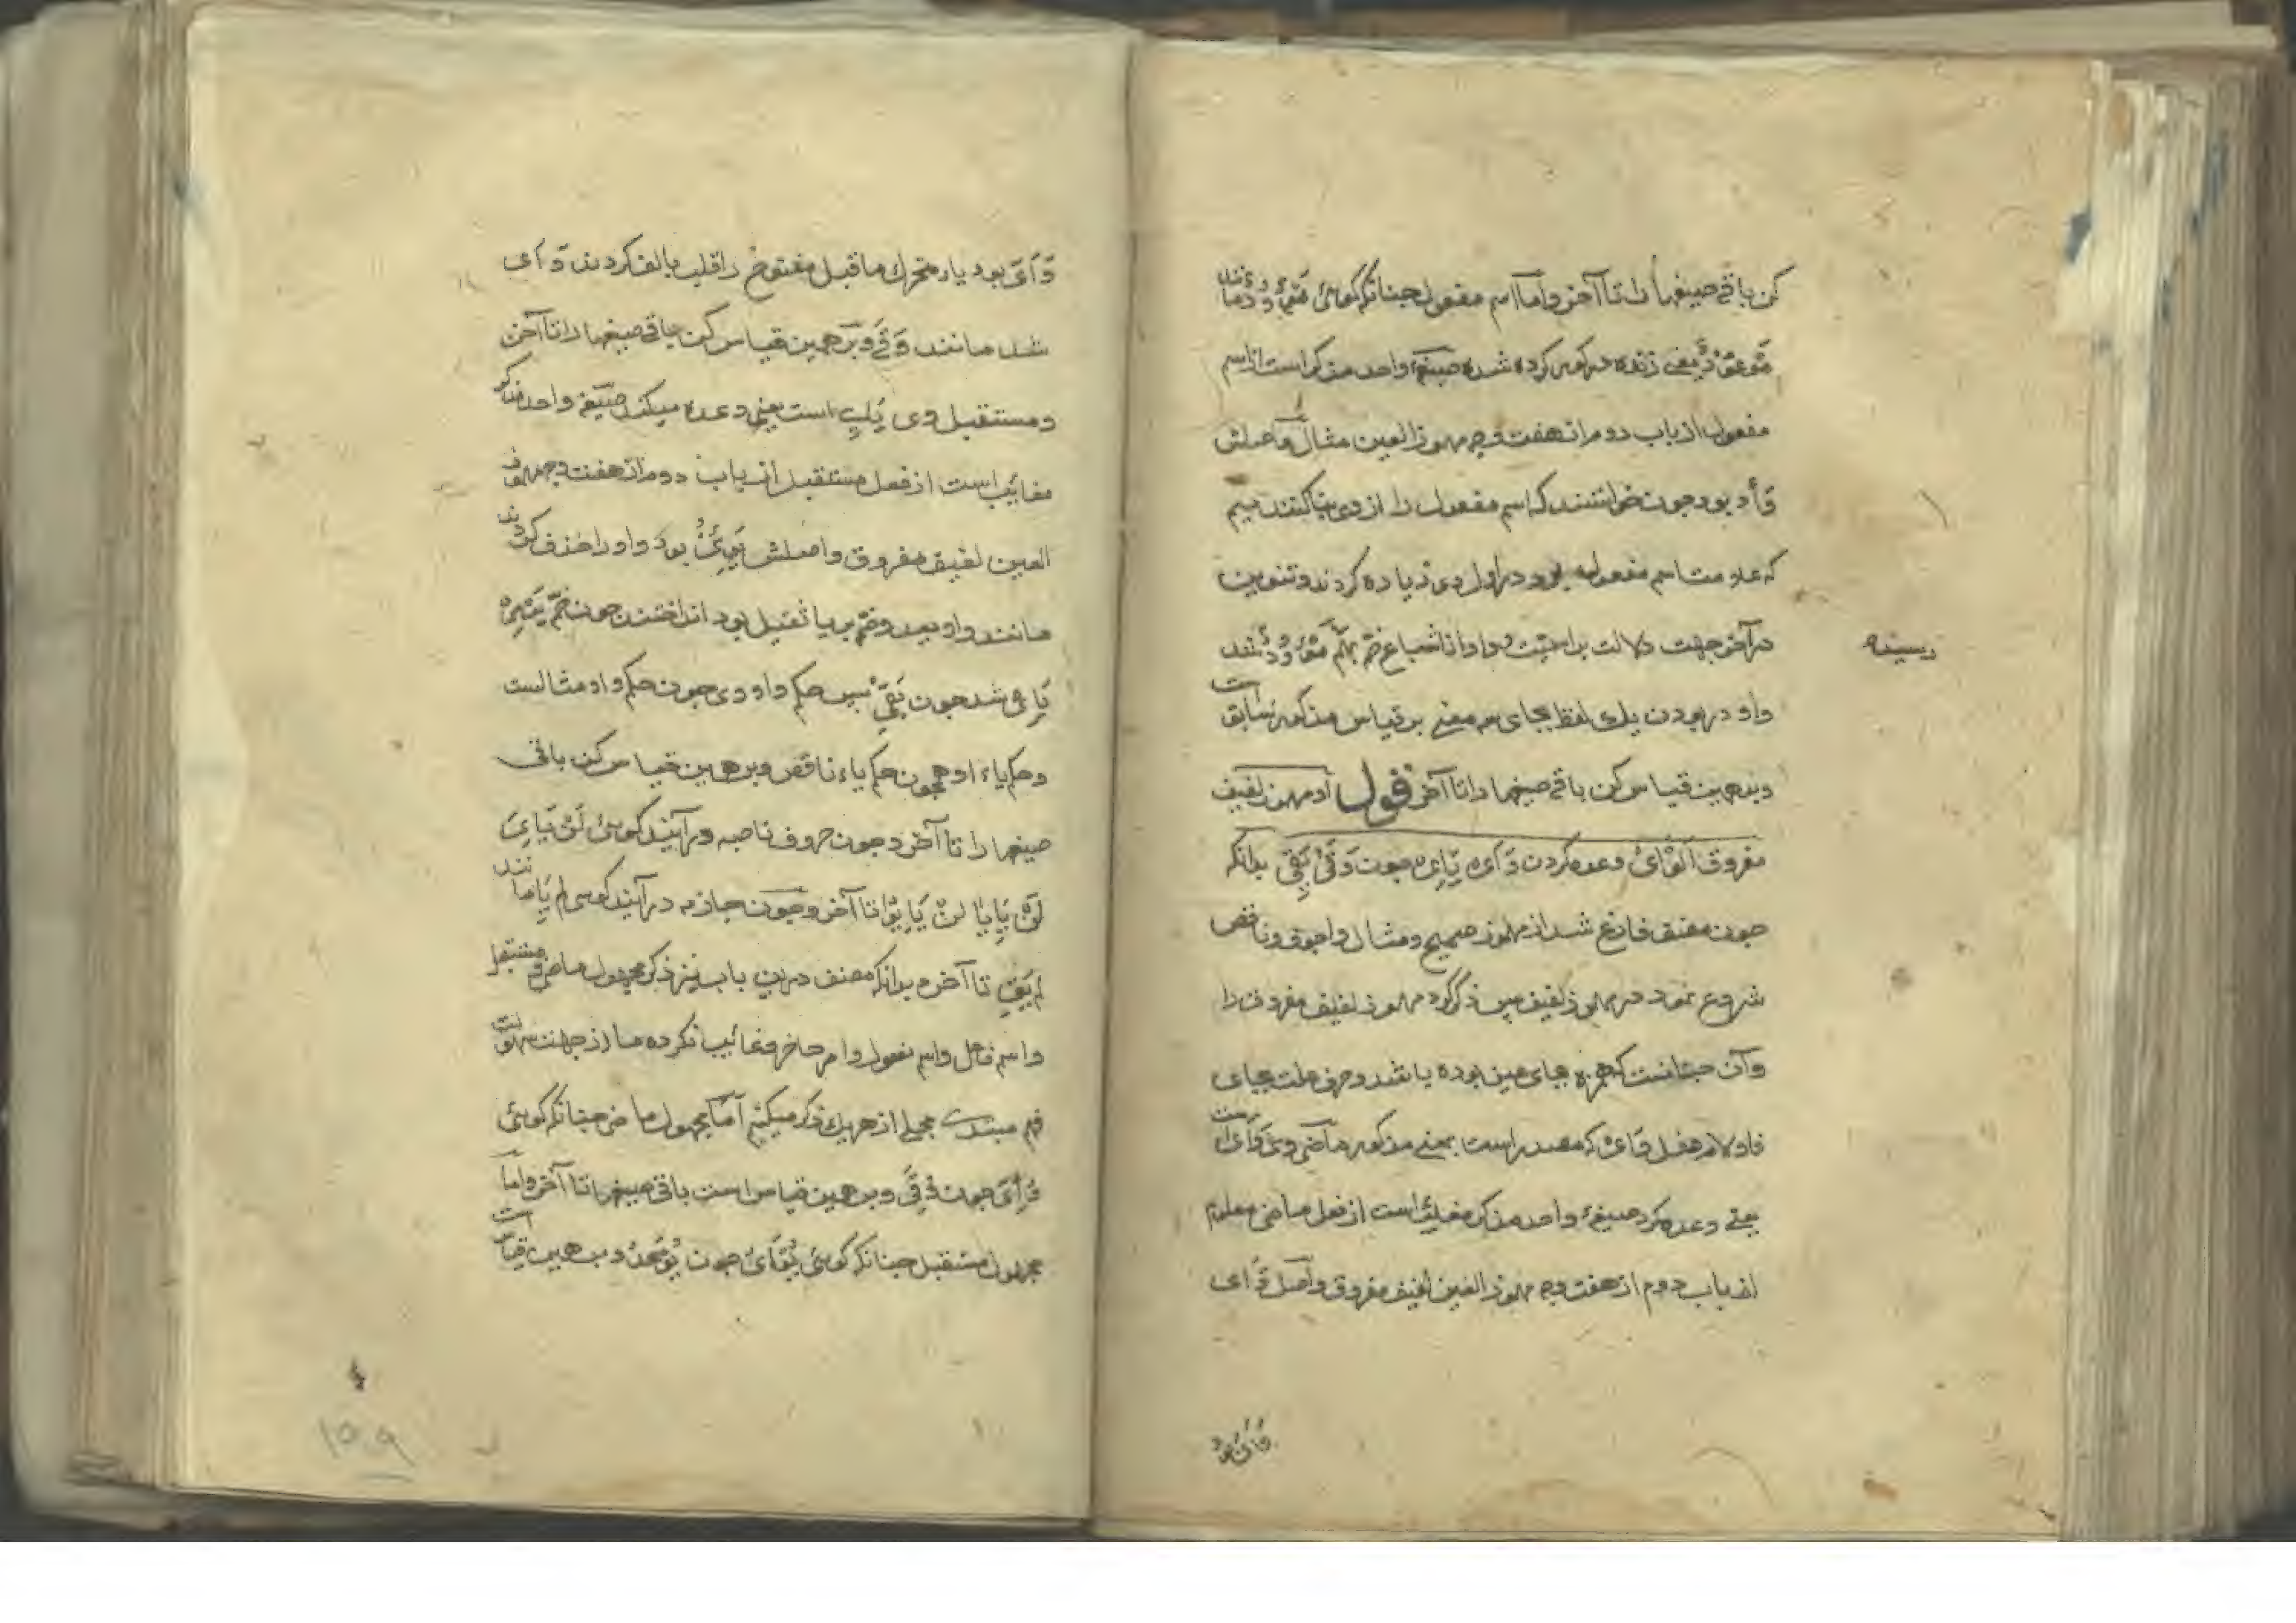 کن باقی صیغها را تا آخر و اما اسم مفعول چنانکه کوئی
مَوْءُوْدٌ یعنی زنده در کور کرده شده صیغهٔ واحد مذکر است از اسم
مفعول از باب دوم از هفت وجه مهموز العین مثال و اصلش
وَأَدَ بود چون خواستند که اسم مفعول را از وی بنا کنند میم
که علامت اسم مفعول بود در اول وی زیاده کردند و تنوین
در آخر جهت دلالت بر اسمیت و واو از اشباع ضمه بهم مَوْءُوْدٌ شد
رسیده
واو در بودن یک لفظ بجای سه معنی بر قیاس مذکور سابق است
و بدین قیاس کن باقی صیغها را تا آخر قول او مهموز لفیف
مفروق اَلْوَأْیُ وعده کردن وَأَی یَأِی چون وَقَی یَقِی بدانکه
چون مصنف فارغ شد از مهموز صحیح و مثال و اجوف و ناقص
شروع نمود در مهموز لفیف پس ذکر کرد مهموز لفیف مفروق را
و آن چنانست که همزه بجای عین بوده باشد و حرف علت بجای
فا و لام فعل وَأْیٌ که مصدر است بمعنی مذکور ماضی وی وَأَی است
یعنی وعده کرد صیغهٔ واحد مذکر مغایب است از فعل ماضی معلوم
از باب دوم از هفت وجه مهموز العین لفیف مفروق و اصل وَأَی
وَأَیَ بود
وَأَیَ بود یاء متحرک ماقبل مفتوح را قلب بالف کردند وَأَی
شد مانند وَقَی و بر همین قیاس کن باقی صیغها را تا آخر
و مستقبل وی یَأِی است یعنی وعده میکند صیغهٔ واحد مذکر
مغائب است از فعل مستقبل از باب دوم از هفت وجه مهموز
العین لفیف مفروق و اصلش یَوْئِیُ بود واو را حذف کردند
مانند واو یعد و ضمه بر یا ثقیل بود انداختند چون ضمه یَرْمِیُ
یَأِی شد چون یَقِی پس حکم واو وی چون حکم واو مثالست
و حکم یاء او همچون حکم یاء ناقص و بر همین قیاس کن باقی
صیغها را تا آخر و چون حروف ناصبه در آیند کوئی لَنْ یَأِیَ
لَنْ یَأِیَا لَنْ یَأَوْا تا آخر و چون جازمه در آیند کوئی لم یَأِ مانند
لم یَقِ تا آخره بدانکه مصنف درین باب نیز ذکر مجهول ماضی و مستقبل
و اسم فاعل و اسم مفعول و امر حاضر و غائب نکرده ما از جهت سهولت
فهم مبتدی مجملی از هریک ذکر میکنیم اما مجهول ماضی چنانکه کوئی
وُئِیَ چون وُقِیَ و بر همین قیاس است باقی صیغها تا آخر و اما
مجهول مستقبل چنانکه کوئی یُوْأَی چون یُوْعَدُ و بر همین قیاس است
۱۵۹